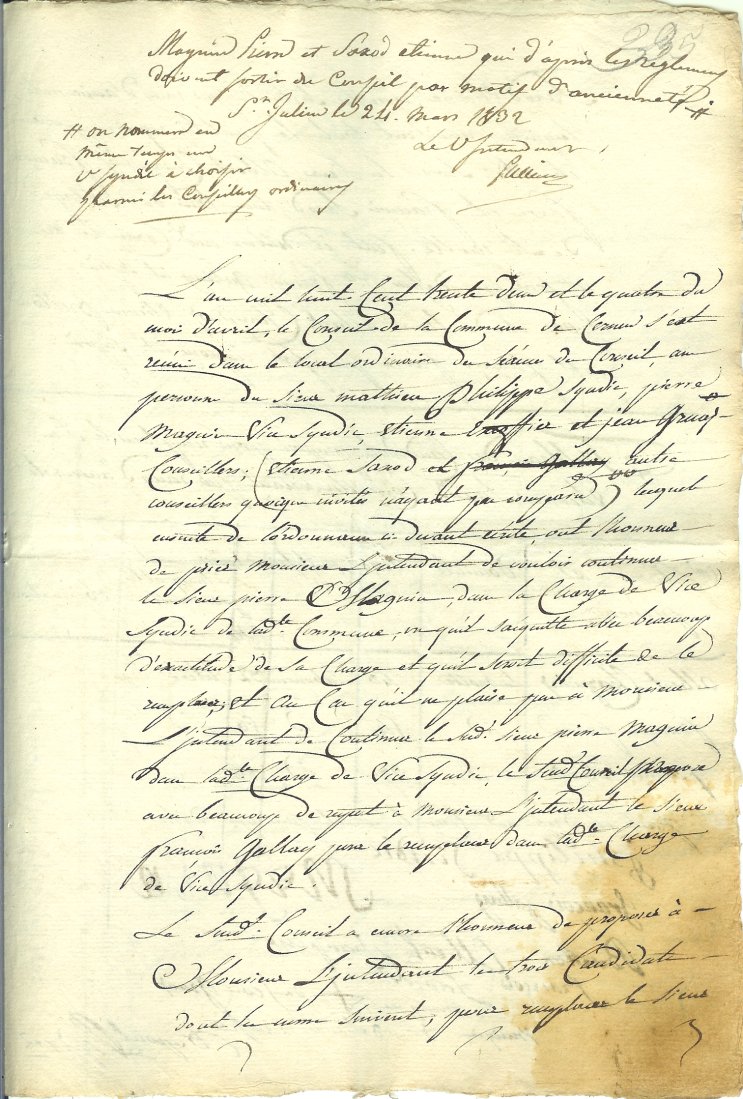 235
Magnin Pierre et Saxod etienne qui d'après les Règlemens
doivent sortir du Conseil par motif d'ancienneté #
St. Julien le 24. Mars 1832
# on nommera en
même temps un
V. syndic à choisir
parmi les Conseillers ordinaires
Le V Intendant
L'an mil huit Cent trente deux et le quatre du
mois d'avril, le Conseil de la Commune de Cernex s'est
réuni dans le local ordinaire des séances du Conseil, aux
personnes des sieurs mathieu Philippe Syndic, pierre
Magnin Vice Syndic, etienne et jean Gruaz
Conseillers; (etienne Saxod et françois Gallay autre
conseillers quoique invités n'ayant pas comparu) lesquels
ensuite de l'ordonnance ci devant écrite, ont l'honneur
de prier Monsieur L'jntendant de vouloir continuer
le sieur pierre Magnin, dans la Charge de Vice
Syndic de ladte. Commune, vu qu'il s'acquitte avec beaucoup
d'exactitude de sa Charge et qu'il seroit difficile de le
remplacer; et au Cas qu'il ne plaise pas à Monsieur
L'jntendant de Continuer le sudt. sieur pierre Magnin
dans ladte. Charge de Vice Syndic, le sudt. Conseil propose
avec beaucoup de respet à Monsieur L'jntendant le sieur
françois Gallay pour le remplacer dans ladte. Charge
de Vice Syndic.
Le sudt. Conseil a encore l'honneur de proposer à
Monsieur L'jntendant les trois Candidats
dont les noms suivent, pour remplacer le sieur